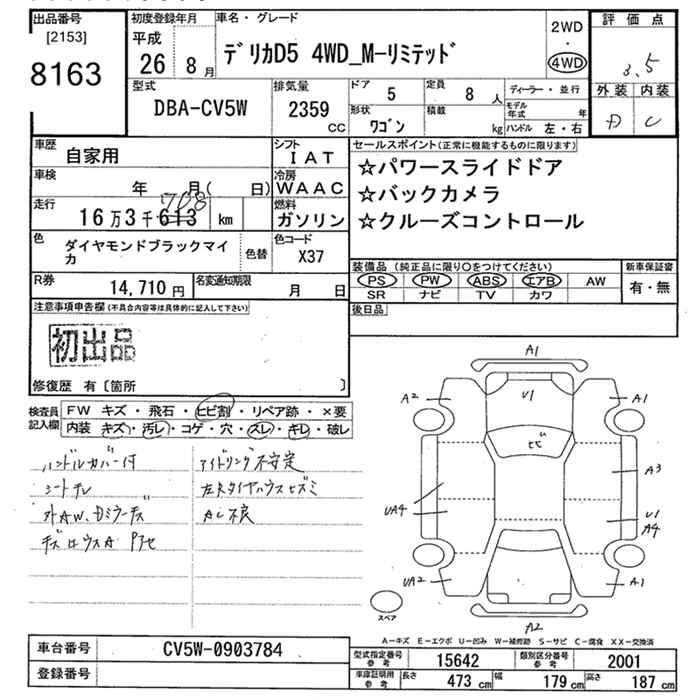 出品番号
[2153]
8163
初度登録年月
平成
26年 8月
車名・グレード
デリカD5 4WD_M-リミテッド
2WD
・
4WD
評価点
3.5
外装 内装
D C
型式
DBA-CV5W
排気量
2359
CC
ドア 5
定員 8 人
ディーラー・並行
形状 ワゴン
積載 kg
モデル年式 年
ハンドル 左・右
車歴 自家用
シフト
IAT
車検 年 月( 日)
冷房
WAAC
走行 16万3千613 km
708
燃料
ガソリン
色 ダイヤモンドブラックマイカ
色替
色コード
X37
R券 14,710円
名変通知期限 月 日
セールスポイント(正常に機能するものに限ります)
☆パワースライドドア
☆バックカメラ
☆クルーズコントロール
装備品(純正品に限り○をつけてください)
PS PW ABS エアB AW
SR ナビ TV カワ
新車保証書
有・無
後日品
注意事項申告欄(不具合内容等は具体的に記入して下さい)
初出品
修復歴 有〔箇所 〕
検査員記入欄
FW キズ・飛石・ヒビ割・リペア跡・×要
内装 キズ・汚レ・コゲ・穴・スレ・キレ・破レ
ハンドルカバー付
シートチレ
外AW、Dミラーキズ
キズ
アイドリング不安定
左Rタイヤハウスヒズミ
AC不良
A1
A2
U1
A1
ヒビ
A3
UA4
U1
A4
UA2
A1
A2
スペア
A-キズ E-エクボ U-凹み W-補修跡 S-サビ C-腐食 XX-交換済
車台番号 CV5W-0903784
登録番号
型式指定番号 参考 15642
類別区分番号 参考 2001
車庫証明用 参考 長さ 473 cm 幅 179 cm 高さ 187 cm